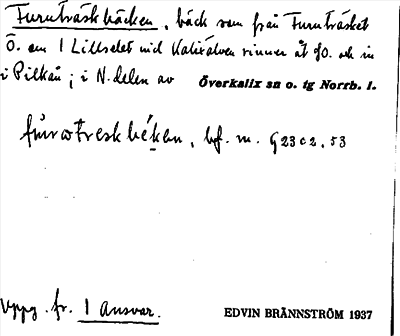 Furuträskbäcken, bäck som från Furuträsket
Ö. om 1 Lillselet vid Kalixälven rinner åt SO. och in
i Pilkån; i N. delen av Överkalix sn o. tg Norrb. l.
bf. m. G23c2.53
Uppg. fr. 1 ansvar.
EDVIN BRÄNNSTRÖM 1937